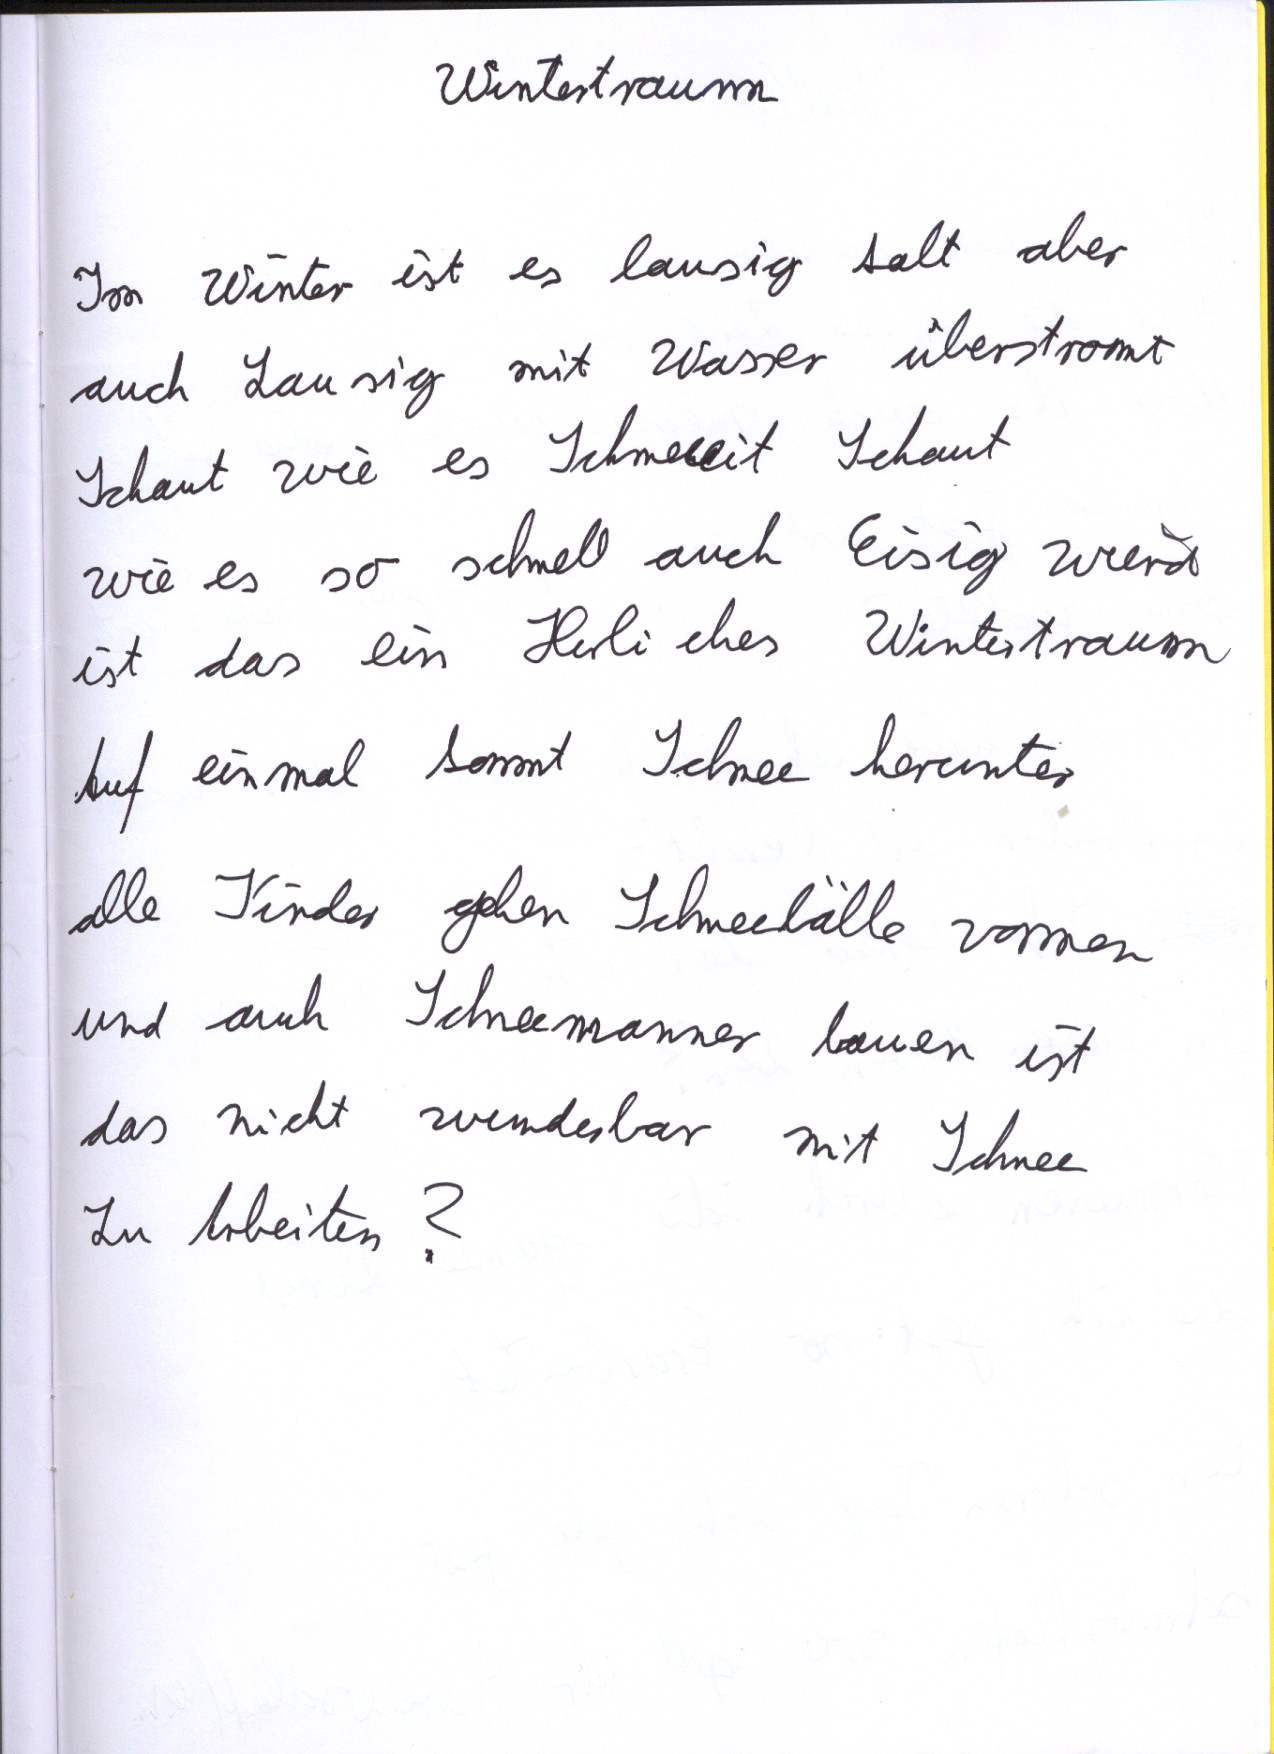 Wintertraum
Im Winter ist es lausig kalt aber
auch Lausig mit Wasser überstromt
Schaut wie es Schneeit Schaut
wie es so schnell auch Eisig wierd
ist das ein Herliches Wintertraum
Auf einmal kommt Schnee herunter
alle Kinder gehen Schneebälle vormen
und auch Schneemanner bauen ist
das nicht wunderbar mit Schnee
Zu Arbeiten ?